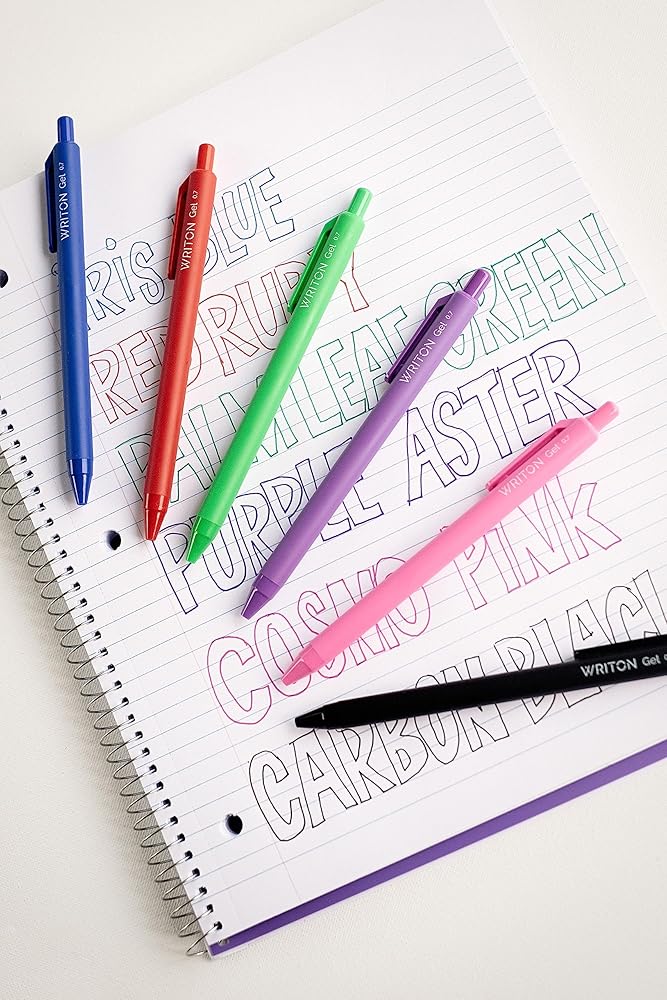 IRiS BLUE
RED RUBY
PALM LEAF GREEN
PURPLE ASTER
COSMO PINK
CARBON BLACK
WRITON Gel 0.7
WRITON Gel 0.7
WRITON Gel 0.7
WRITON Gel 0.7
WRITON Gel 0.7
WRITON Gel